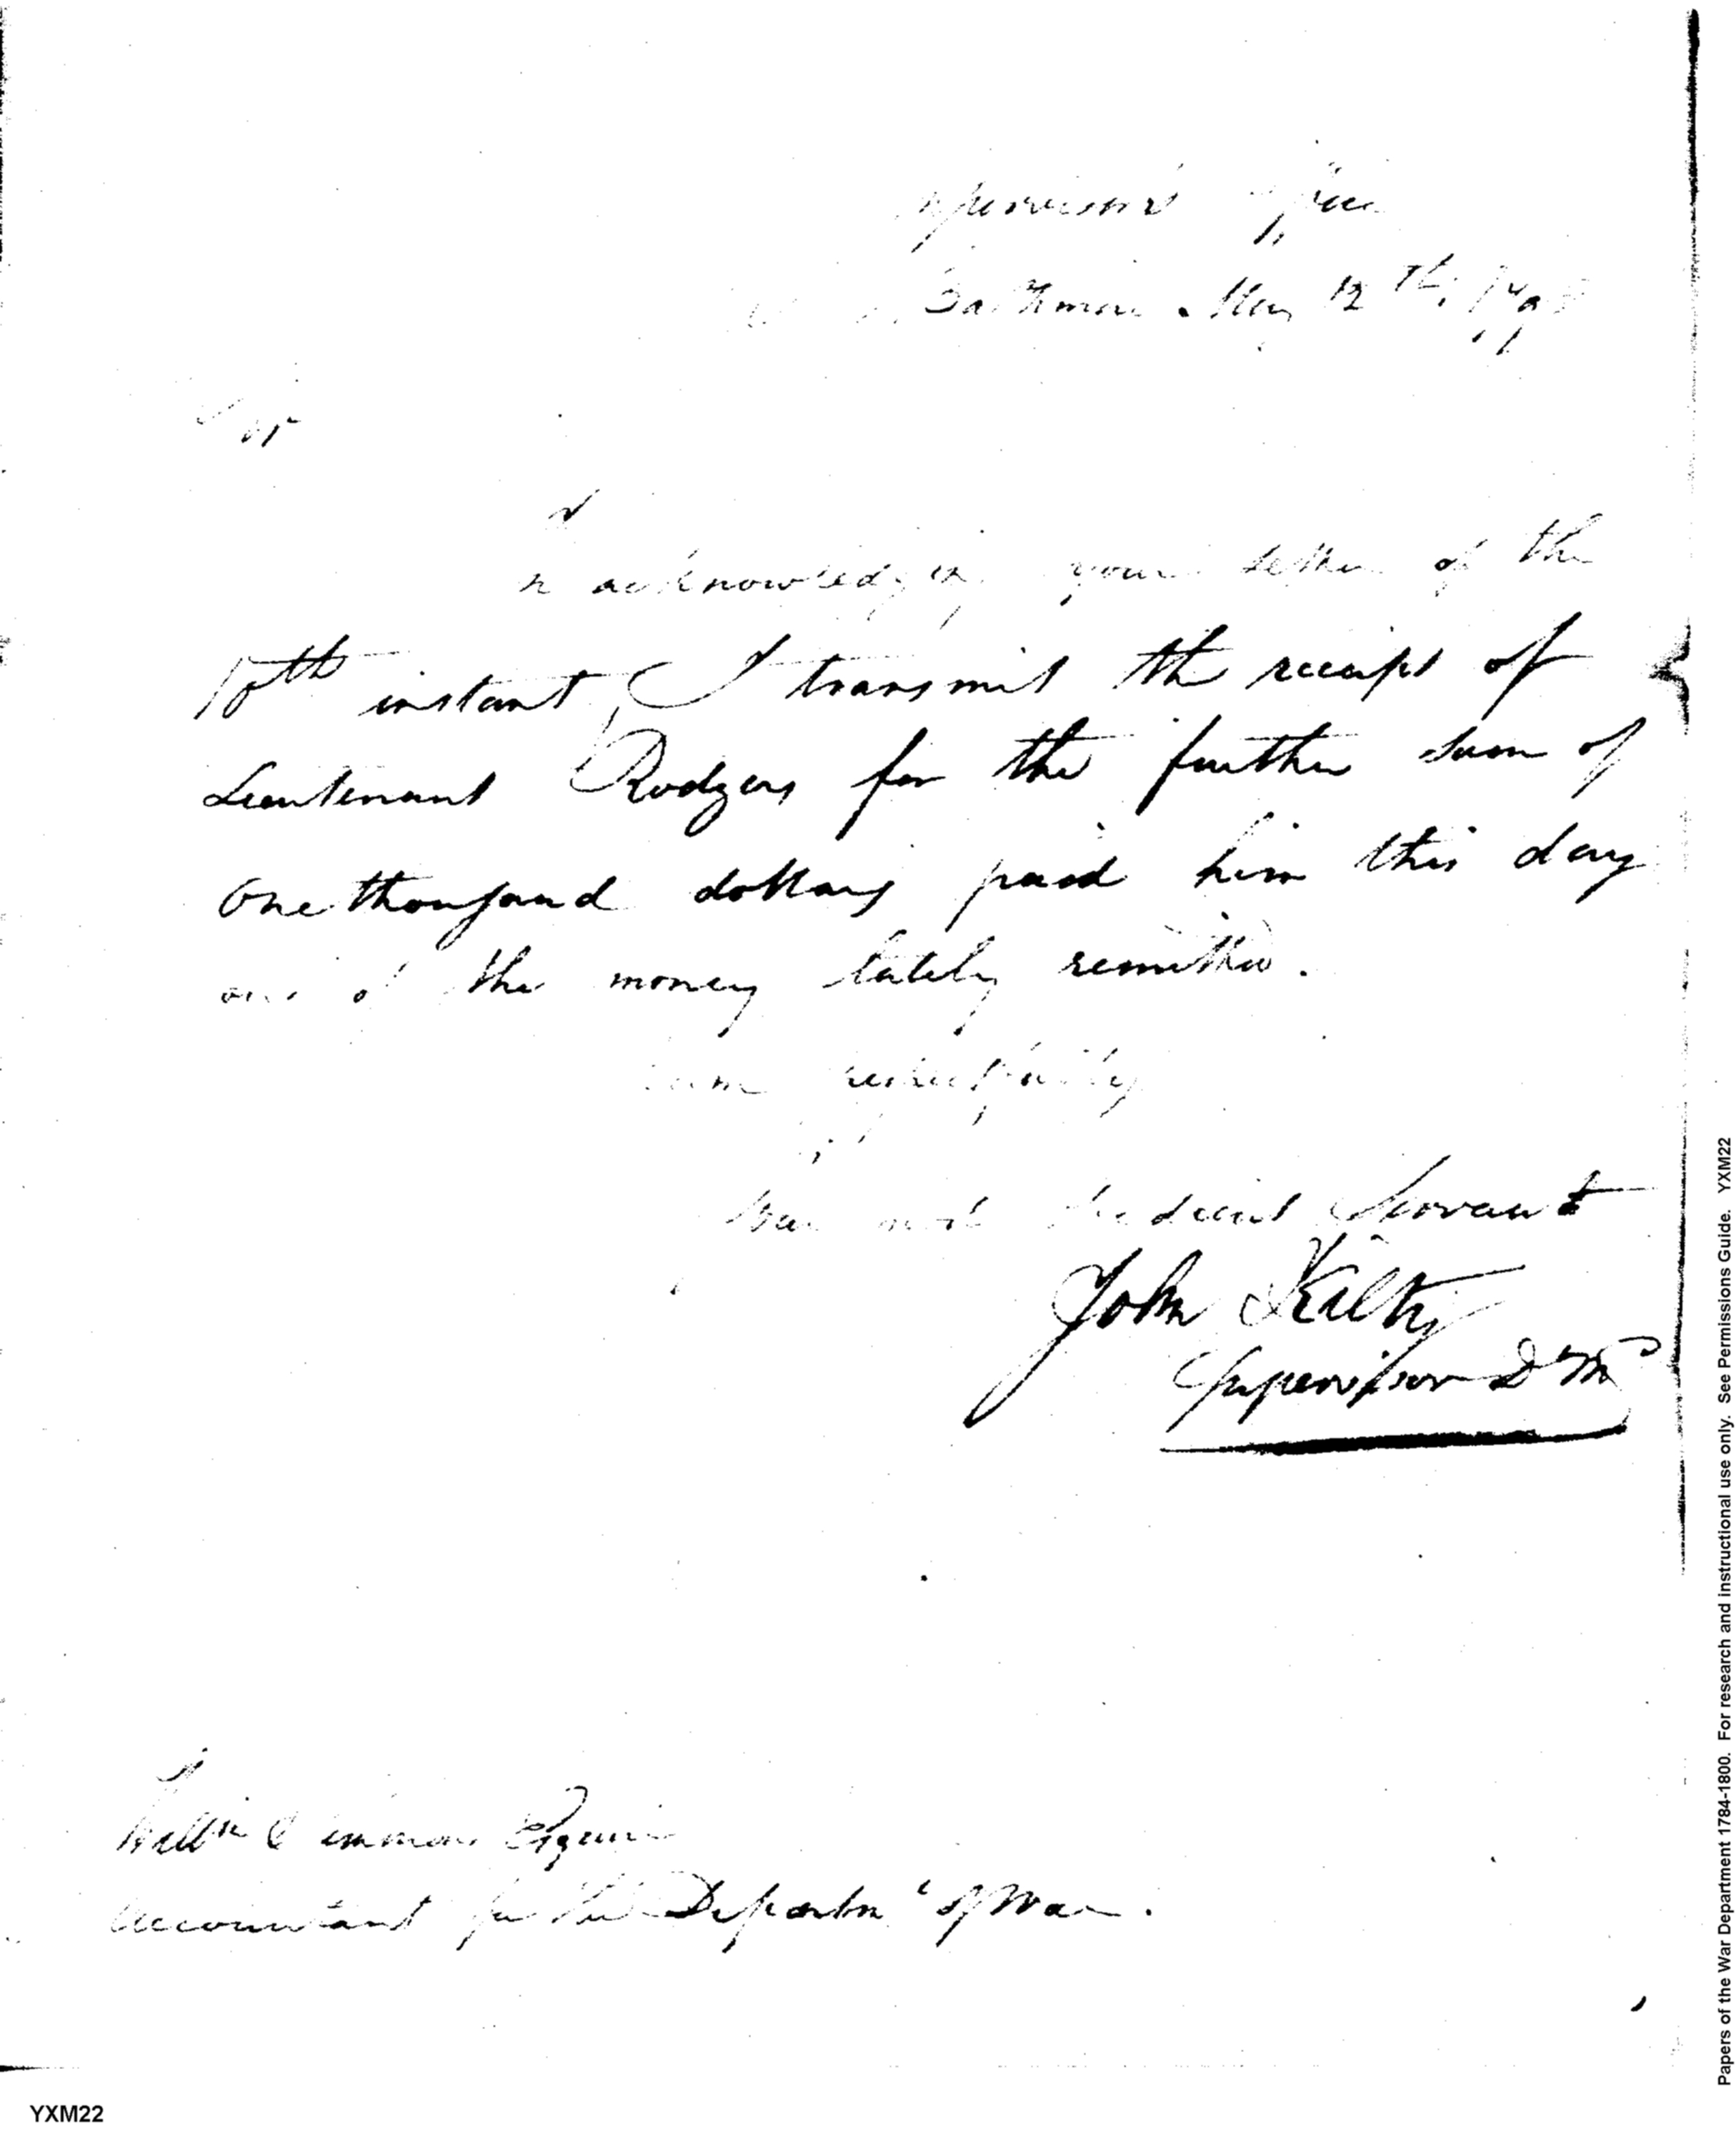 Supervisor's Office
Baltimore May 12th. 179
Sir
In acknowledging your letter of the
10th instant, I transmit the receipt of
Lieutenant Rodgers for the further sum of
one thousand dollars paid him this day
out of the money lately remitted.
I am respectfully
Sir
Your most obedient Servant
John Kilty
Supervisor D Md
Willm Simmons Esquire
Accountant for the Departmt of War.
YXM22
Papers of the War Department 1784-1800. For research and instructional use only. See Permissions Guide. YXM22